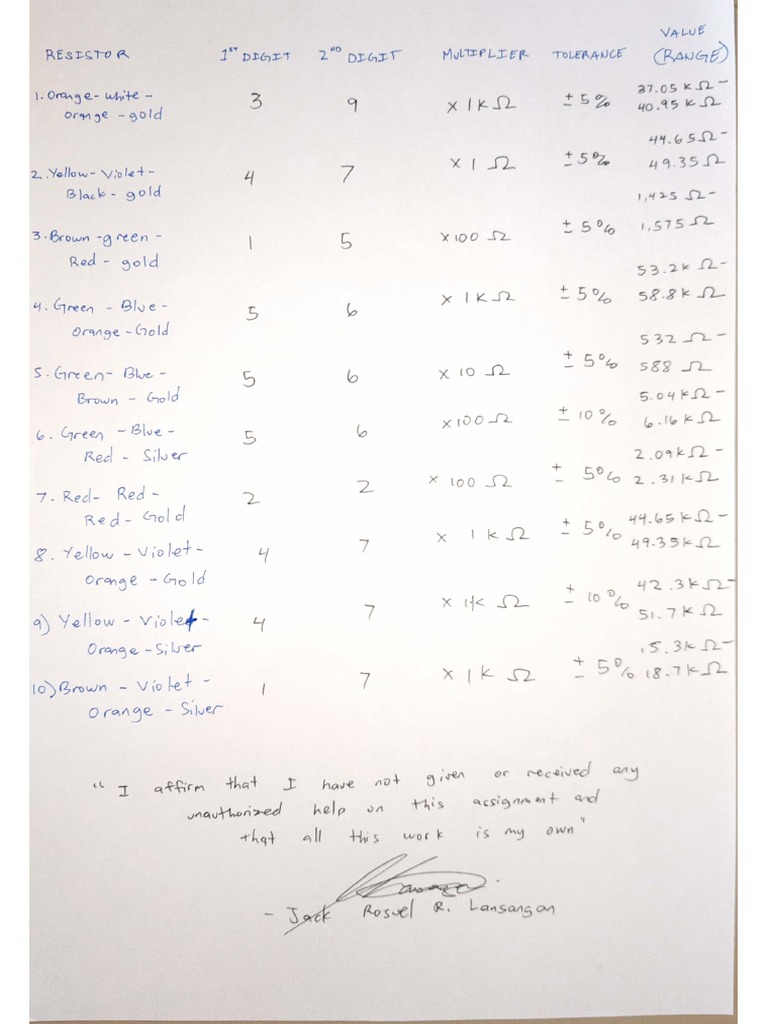 RESISTOR 1ST DIGIT 2ND DIGIT MULTIPLIER TOLERANCE VALUE (RANGE)
1. Orange - white - 3 9 x 1k Ω ± 5% 37.05 k Ω -
orange - gold 40.95 k Ω
2. Yellow - Violet - 4 7 x 1 Ω ± 5% 44.65 Ω -
Black - gold 49.35 Ω
3. Brown - green - 1 5 x 100 Ω ± 5% 1,425 Ω -
Red - gold 1,575 Ω
4. Green - Blue - 5 6 x 1k Ω ± 5% 53.2k Ω -
Orange - Gold 58.8k Ω
5. Green - Blue - 5 6 x 10 Ω ± 5% 532 Ω -
Brown - Gold 588 Ω
6. Green - Blue - 5 6 x 100 Ω ± 10% 5.04k Ω -
Red - Silver 6.16k Ω
7. Red - Red - 2 2 x 100 Ω ± 5% 2.09k Ω -
Red - Gold 2.31k Ω
8. Yellow - Violet - 4 7 x 1k Ω ± 5% 44.65k Ω -
Orange - Gold 49.35k Ω
9) Yellow - Violet - 4 7 x 1k Ω ± 10% 42.3k Ω -
Orange - Silver 51.7k Ω
10) Brown - Violet - 1 7 x 1k Ω ± 5% 15.3k Ω -
Orange - Silver 18.7k Ω
"I affirm that I have not given or received any
unauthorized help on this assignment and
that all this work is my own"
- Jack Rosuel R. Lansangan